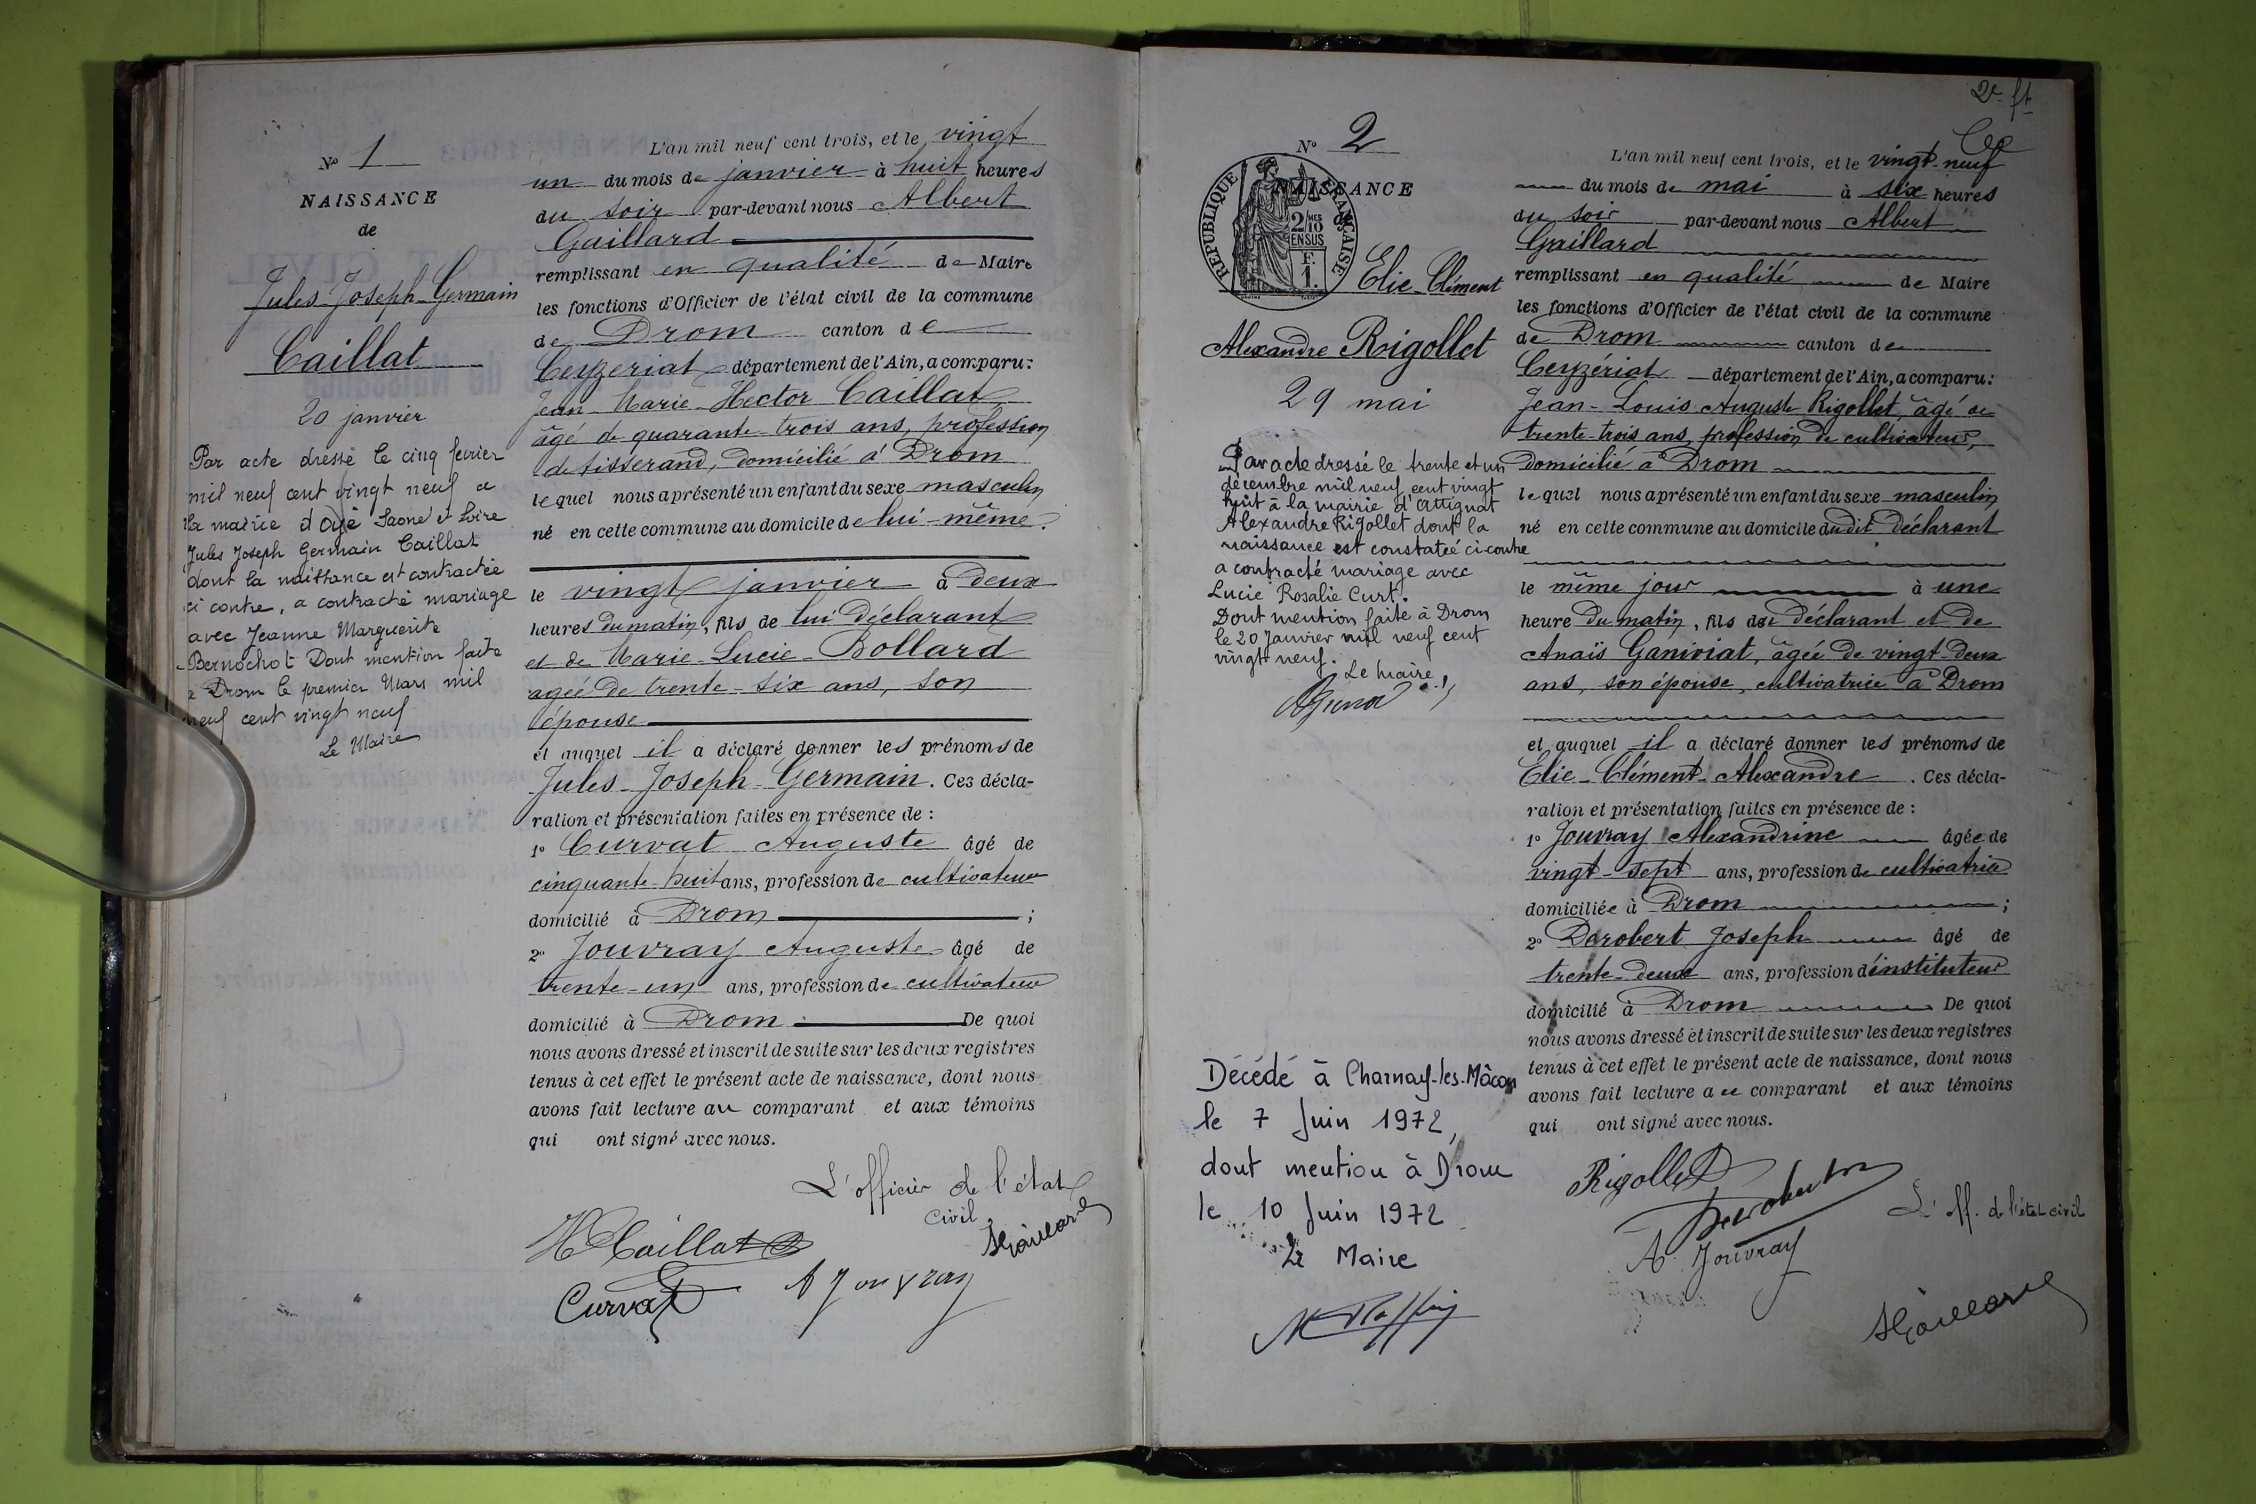 N° 1
NAISSANCE
de
Jules-Joseph-Germain
Caillat
20 janvier
Par acte dressé le cinq février
mil neuf cent vingt neuf a
la mairie d'Oyé Saone et Loire
Jules Joseph Germain Caillat
dont la naissance est contractée
ci contre, a contracté mariage
avec Jeanne Marguerite
Bernochot Dont mention faite
a Drom le premier Mars mil
neuf cent vingt neuf
Le Maire
L'an mil neuf cent trois, et le vingt
un du mois de janvier à huit heures
du soir par-devant nous Albert
Gaillard
remplissant en qualité de Maire
les fonctions d'Officier de l'état civil de la commune
de Drom canton de
Ceyzeriat département de l'Ain, a comparu:
Jean-Marie-Hector Caillat
âgé de quarante-trois ans, profession
de tisserand, domicilié à Drom
lequel nous a présenté un enfant du sexe masculin
né en cette commune au domicile de lui-même.
le vingt janvier à deux
heures du matin, fils de lui déclarant
et de Marie-Lucie-Bollard
agée de trente-six ans, son
épouse
et auquel il a déclaré donner les prénoms de
Jules-Joseph-Germain. Ces décla-
ration et présentation faites en présence de :
1° Curvat Auguste âgé de
cinquante-huit ans, profession de cultivateur
domicilié à Drom ;
2° Jouvray Auguste âgé de
trente-un ans, profession de cultivateur
domicilié à Drom De quoi
nous avons dressé et inscrit de suite sur les deux registres
tenus à cet effet le présent acte de naissance, dont nous
avons fait lecture au comparant et aux témoins
qui ont signé avec nous.
L'officier de l'état
civil
H Caillat
AGaillard
Curvat
A Jouvray
2e ft
N° 2
NAISSANCE
de
RÉPUBLIQUE FRANÇAISE
2/10 MES
EN SUS
F.
1.
Elie-Clément
Alexandre Rigollet
29 mai
Par acte dressé le trente et un
décembre mil neuf cent vingt
huit à la mairie d'Attignat
Alexandre Rigollet dont la
naissance est constatée ci-contre
a contracté mariage avec
Lucie Rosalie Curt.
Dont mention faite à Drom
le 20 Janvier mil neuf cent
vingt neuf.
Le Maire
Décédé à Charnay-les-Mâcon
le 7 Juin 1972,
dont mention à Drom
le 10 Juin 1972
Le Maire
L'an mil neuf cent trois, et le vingt-neuf
du mois de mai à six heures
du soir par-devant nous Albert
Gaillard
remplissant en qualité de Maire
les fonctions d'Officier de l'état civil de la commune
de Drom canton de
Ceyzériat département de l'Ain, a comparu:
Jean-Louis-Auguste Rigollet, âgé de
trente-trois ans, profession de cultivateur,
domicilié à Drom
lequel nous a présenté un enfant du sexe masculin
né en cette commune au domicile dudit déclarant
le même jour à une
heure du matin, fils du déclarant et de
Anaïs Ganiviat, âgée de vingt-deux
ans, son épouse, cultivatrice à Drom
et auquel il a déclaré donner les prénoms de
Élie-Clément-Alexandre. Ces décla-
ration et présentation faites en présence de :
1° Jouvray Alexandrine âgée de
vingt-sept ans, profession de cultivatrice
domiciliée à Drom ;
2° Derobert Joseph âgé de
trente-deux ans, profession d'instituteur
domicilié à Drom De quoi
nous avons dressé et inscrit de suite sur les deux registres
tenus à cet effet le présent acte de naissance, dont nous
avons fait lecture au comparant et aux témoins
qui ont signé avec nous.
Rigollet
Derobert
L'off. de l'état civil
A. Jouvray
AGaillard